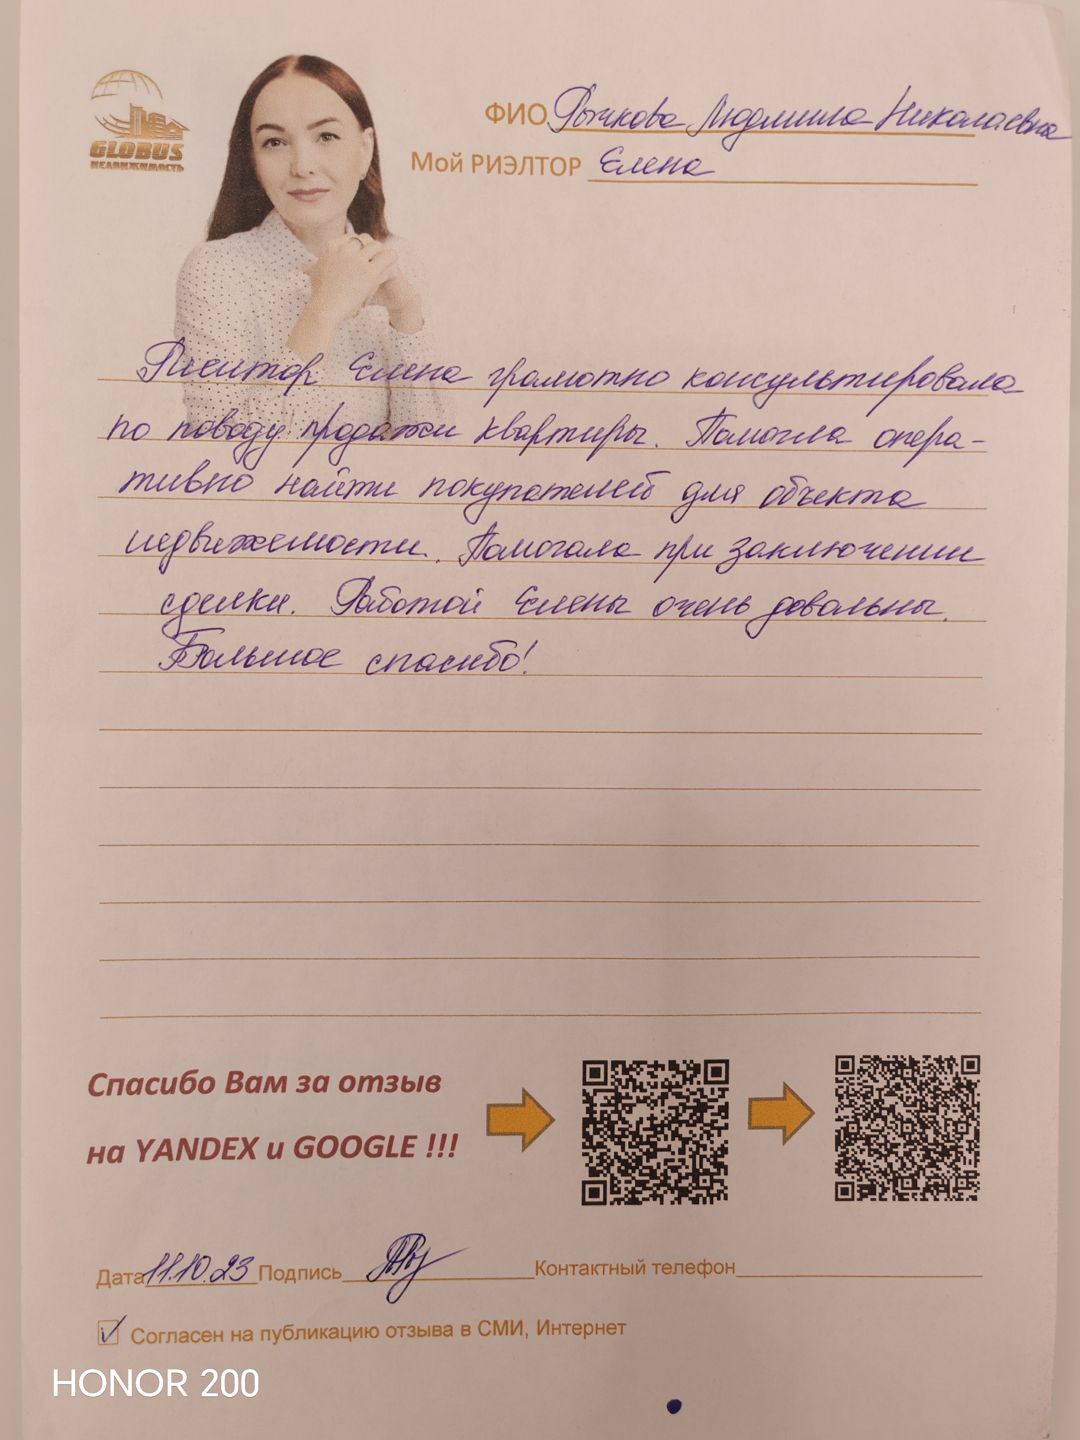 GLOBUS
НЕДВИЖИМОСТЬ
ФИО Рычкова Людмила Николаевна
Мой РИЭЛТОР Елена
Риелтор Елена грамотно консультировала
по поводу продажи квартиры. Помогла опера-
тивно найти покупателей для объекта
недвижемости. Помогала при заключении
сделки. Работой Елены очень довольны.
Большое спасибо!
Спасибо Вам за отзыв
на YANDEX и GOOGLE !!!
Дата 11.10.23 Подпись Контактный телефон
Согласен на публикацию отзыва в СМИ, Интернет
HONOR 200